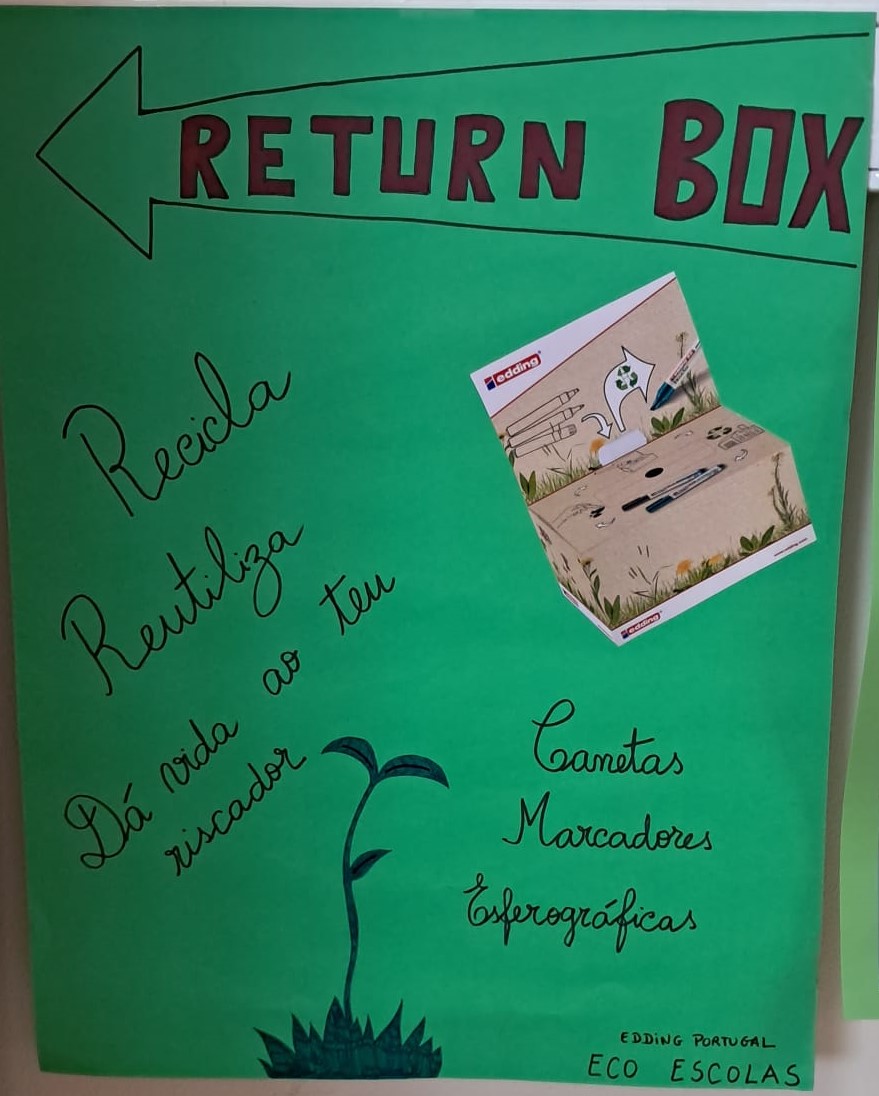 RETURN BOX
edding
Recicla
Reutiliza
Dá vida ao teu
riscador
edding
Canetas
Marcadores
Esferográficas
EDDING PORTUGAL
ECO ESCOLAS